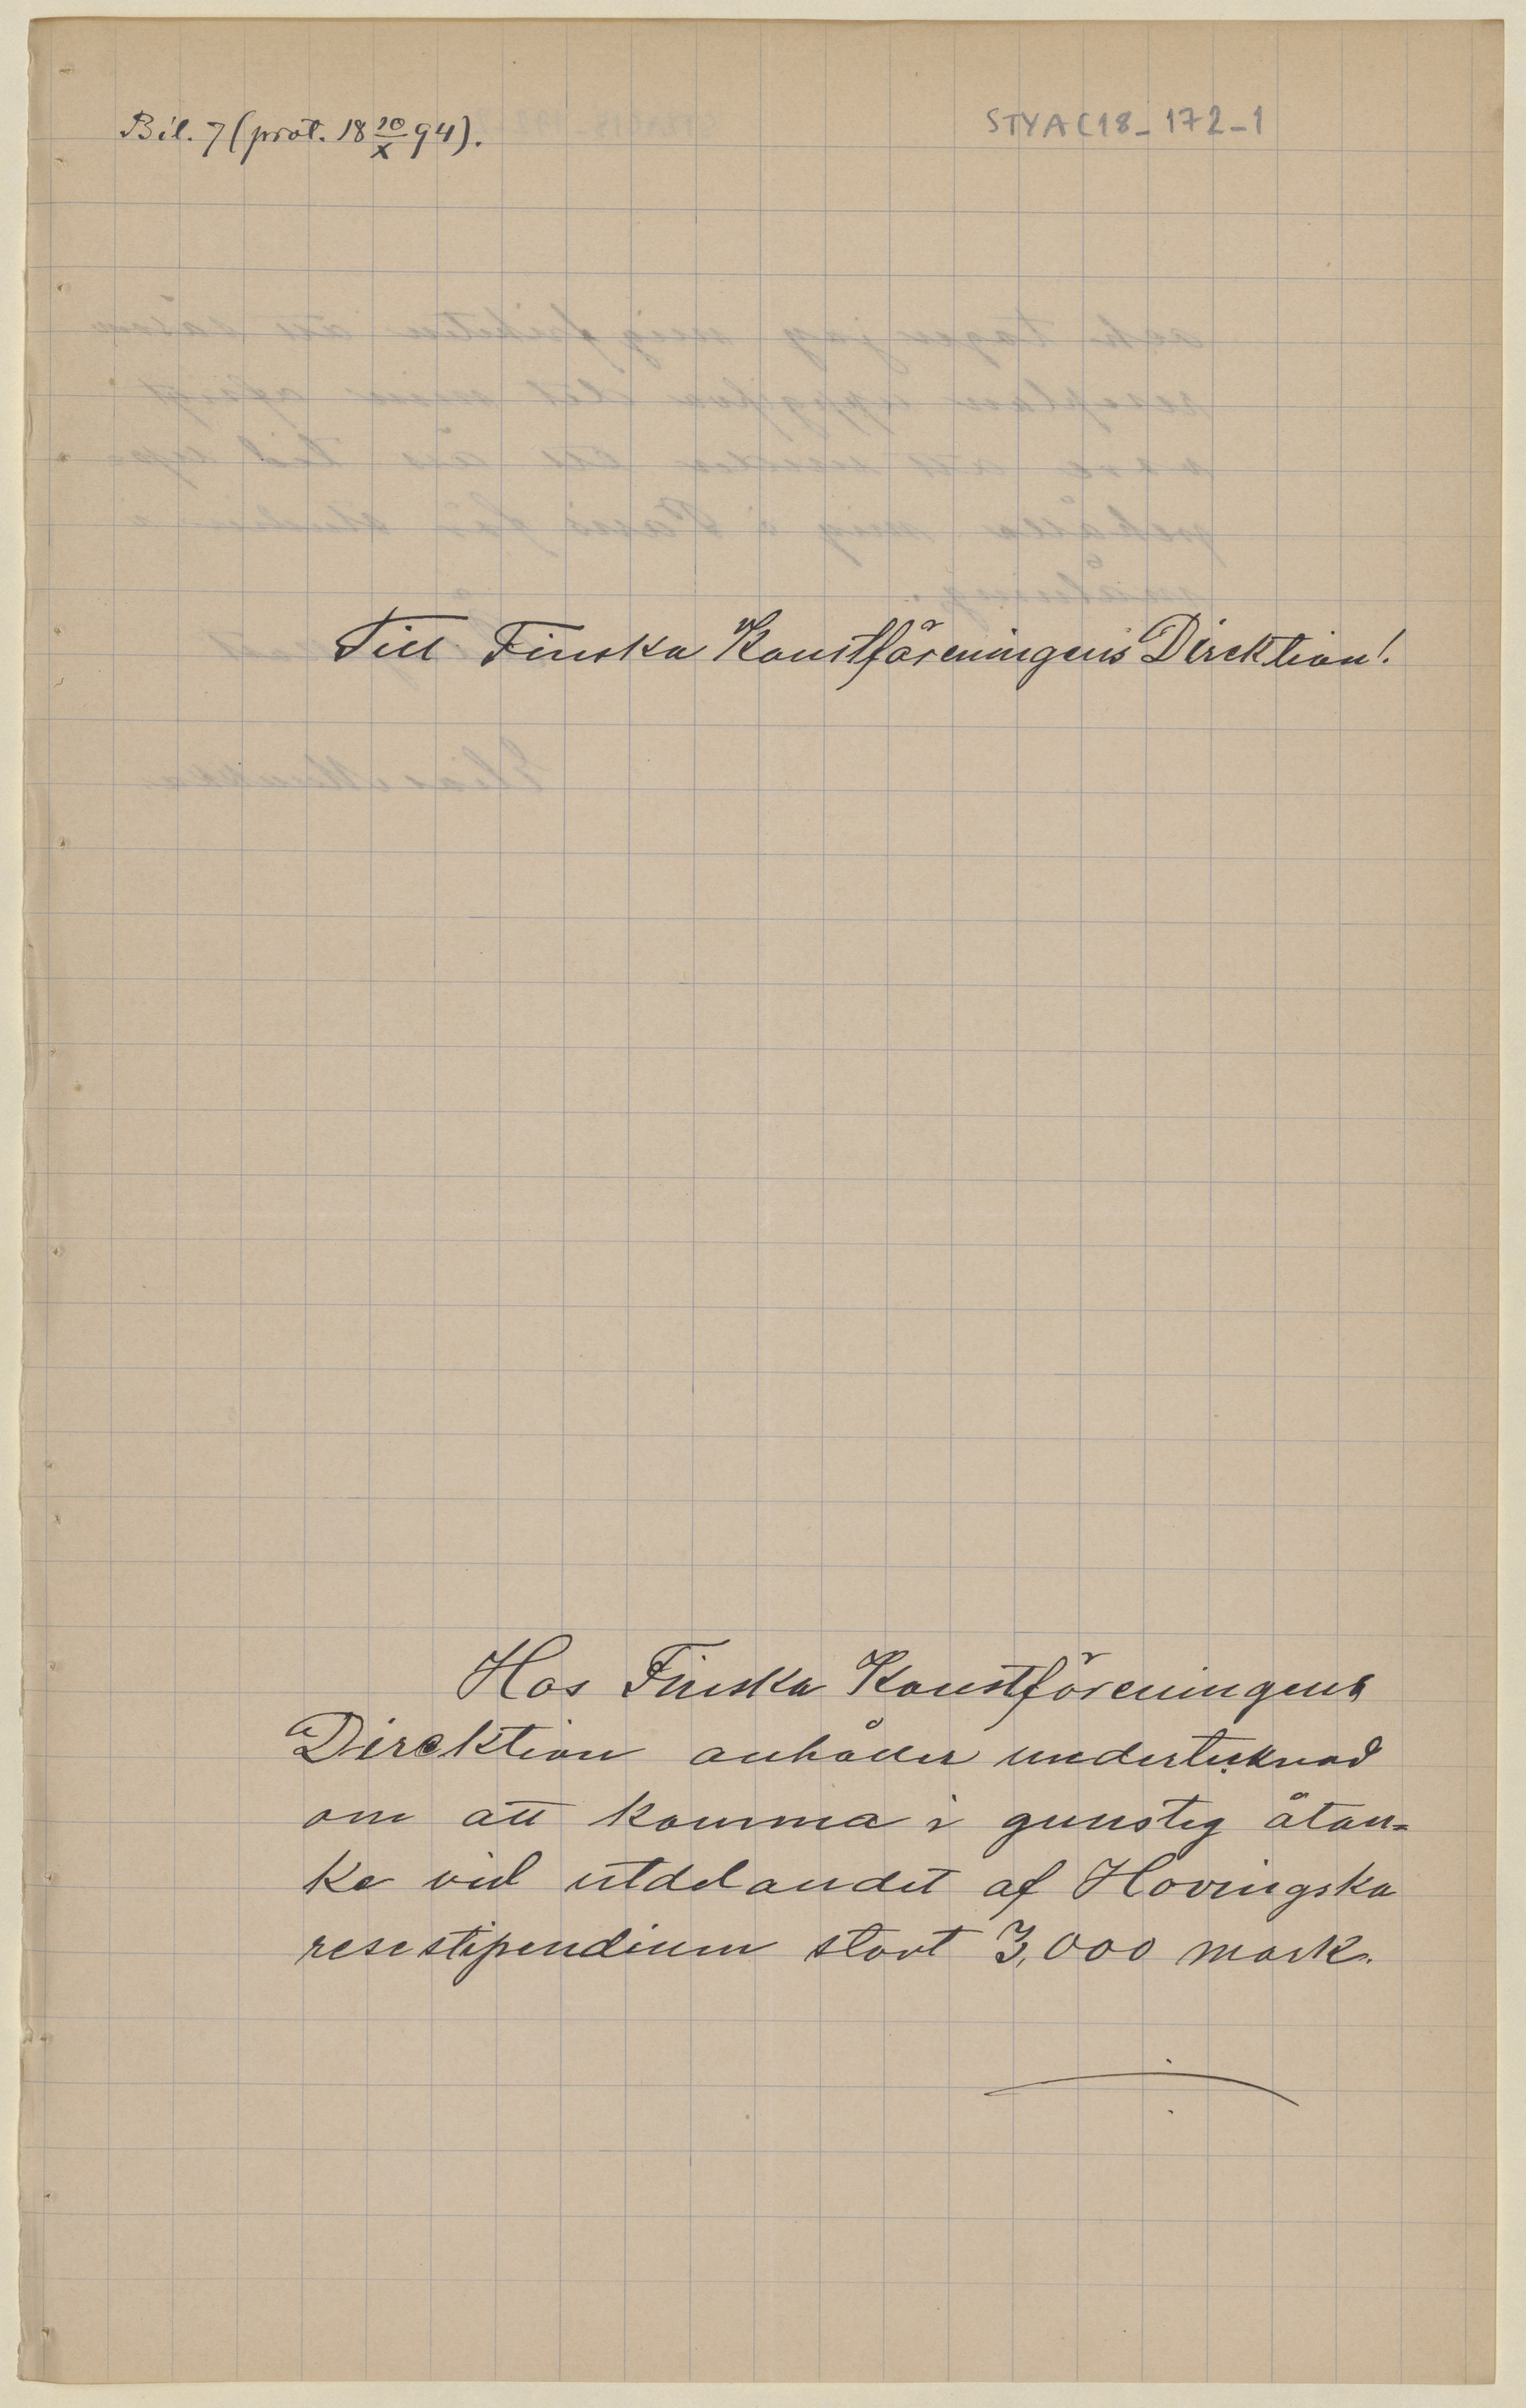 Bil. 7 (prot. 18 20/X 94).
STYA C18_172_1
Till Finska Konstföreningens Direktion!
Hos Finska Konstföreningens
Direktion anhåller undertecknad
om att komma i gunstig åtan=
ke vid utdelandet af Hovingska
resestipendium stort 3,000 mark.